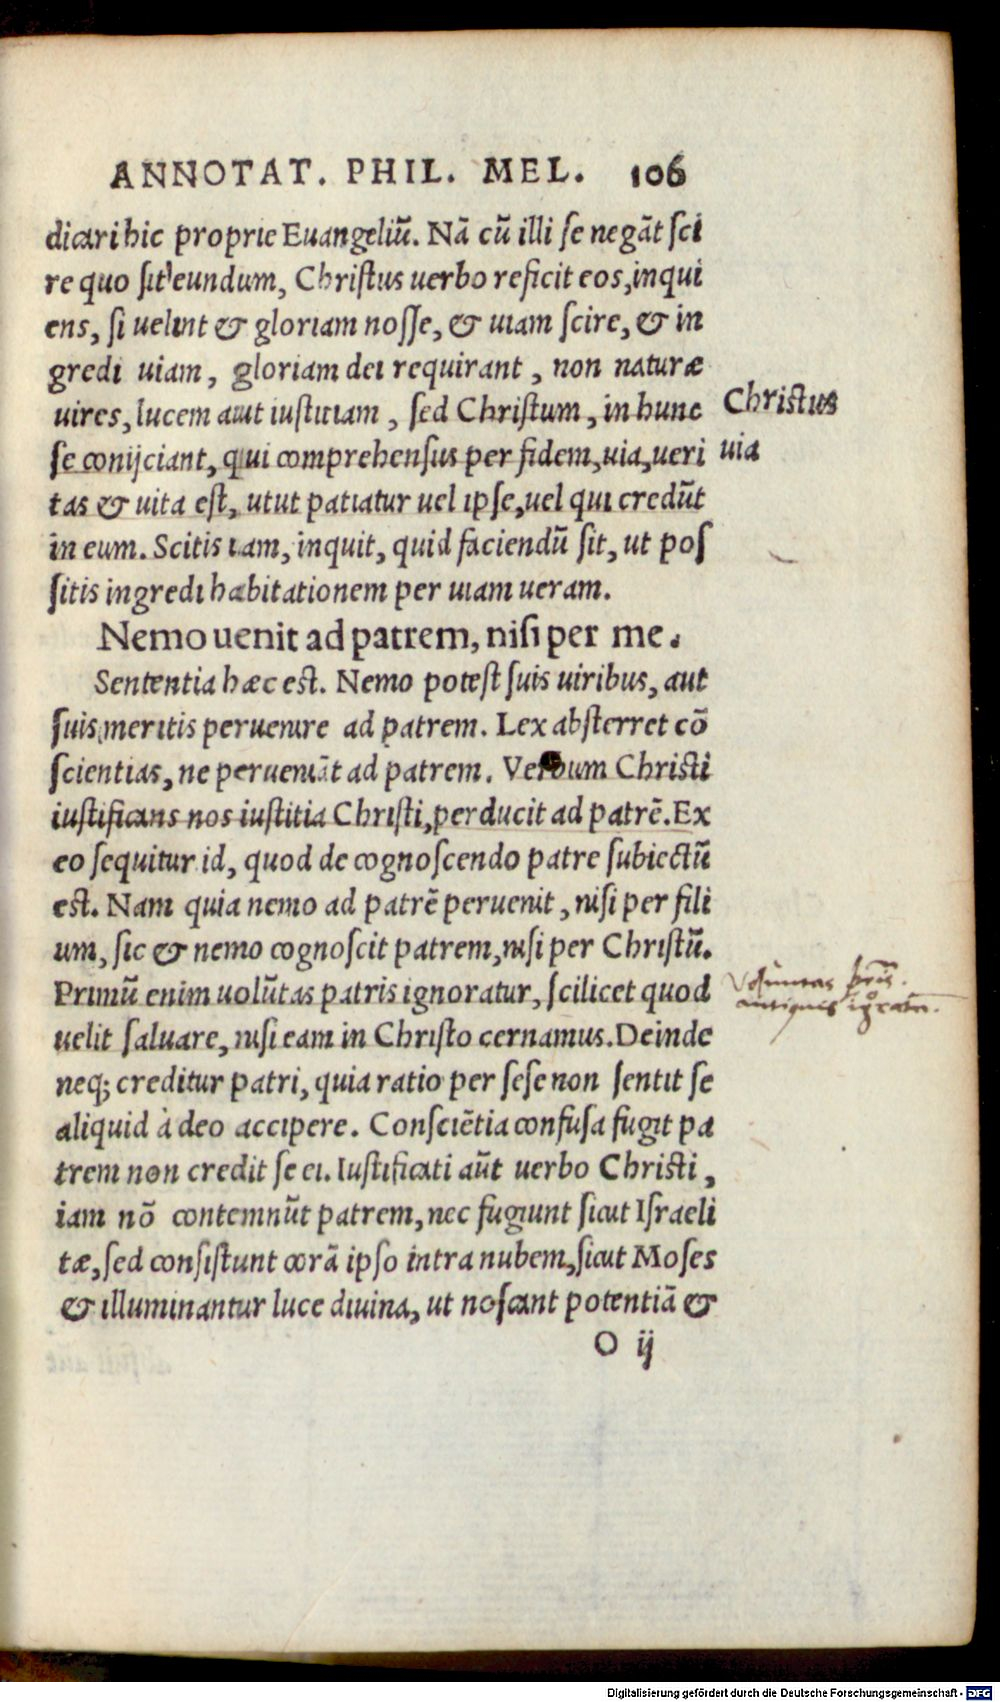 ANNOTAT. PHIL. MEL. 106
dicari hic proprie Euangeliũ. Nã cũ illi se negãt sci
re quo sit eundum, Christus uerbo reficit eos, inqui
ens, si uelint & gloriam nosse, & uiam scire, & in
gredi uiam, gloriam dei requirant, non naturæ
uires, lucem aut iustitiam, sed Christum, in hunc
Christus
se conijciant, qui comprehensus per fidem, uia, ueri
uia
tas & uita est, utut patiatur uel ipse, uel qui credũt
in eum. Scitis iam, inquit, quid faciendũ sit, ut pos
sitis ingredi habitationem per uiam ueram.
Nemo uenit ad patrem, nisi per me.
Sententia hæc est. Nemo potest suis uiribus, aut
suis meritis peruenire ad patrem. Lex absterret cõ
scientias, ne perueniãt ad patrem. Verbum Christi
iustificans nos iustitia Christi, perducit ad patrẽ. Ex
eo sequitur id, quod de cognoscendo patre subiectũ
est. Nam quia nemo ad patrẽ peruenit, nisi per fili
um, sic & nemo cognoscit patrem, nisi per Christũ.
Primũ enim uolũtas patris ignoratur, scilicet quod
Voluntas pr̃is
uelit saluare, nisi eam in Christo cernamus. Deinde
neq; creditur patri, quia ratio per sese non sentit se
aliquid à deo accipere. Consciẽtia confusa fugit pa
trem non credit se ei. Iustificati aũt uerbo Christi,
iam nõ contemnũt patrem, nec fugiunt sicut Israeli
tæ, sed consistunt corã ipso intra nubem, sicut Moses
& illuminantur luce diuina, ut noscant potentiã &
O ij
Digitalisierung gefördert durch die Deutsche Forschungsgemeinschaft - DFG